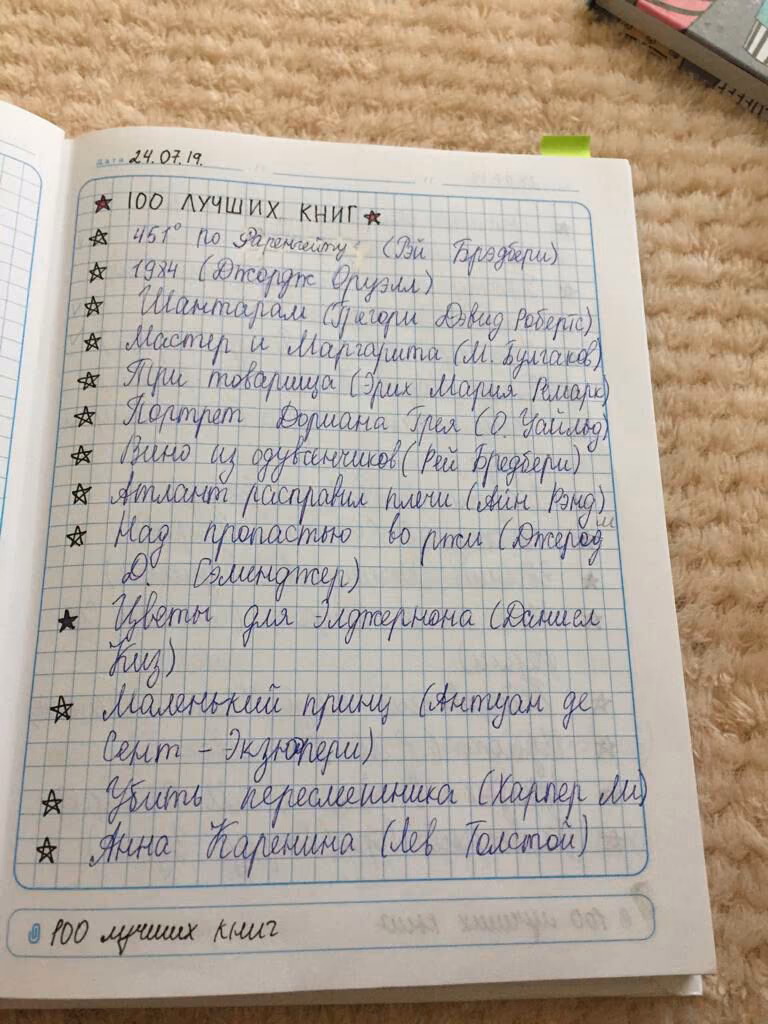 ДАТА 24.07.19.
100 ЛУЧШИХ КНИГ
451° по Фаренгейту (Рэй Брэдбери)
1984 (Джордж Оруэлл)
Шантарам (Грегори Дэвид Робертс)
Мастер и Маргарита (М. Булгаков)
Три товарища (Эрих Мария Ремарк)
Портрет Дориана Грея (О. Уайльд)
Вино из одуванчиков (Рей Бредбери)
Атлант расправил плечи (Айн Рэнд)
Над пропастью во ржи (Джеромд
Д. Сэлинджер)
Цветы для Элджернона (Даниел
Киз)
Маленький принц (Антуан де
Сент - Экзюпери)
Убить пересмешника (Харпер Ли)
Анна Каренина (Лев Толстой)
100 лучших книг